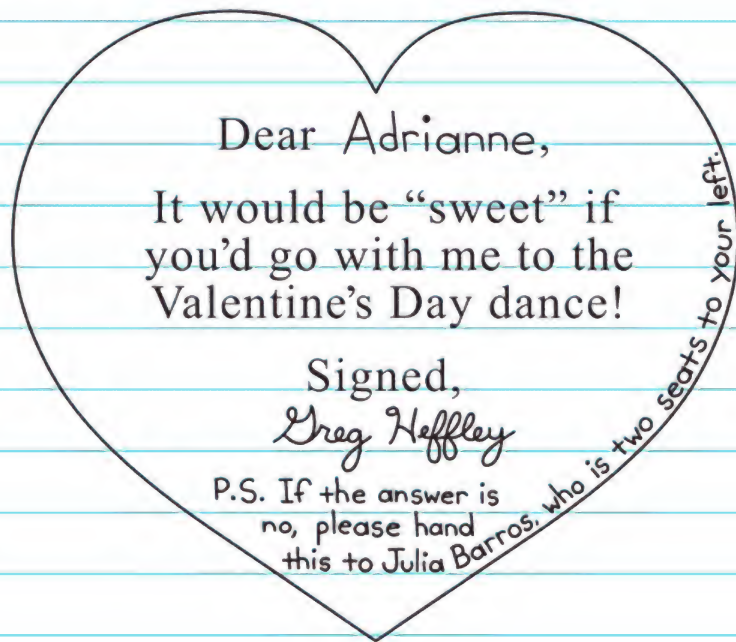 Dear Adrianne,
It would be “sweet” if
you’d go with me to the
Valentine’s Day dance!
Signed,
Greg Heffley
P.S. If the answer is
no, please hand
this to Julia Barros, who is two seats to your left.